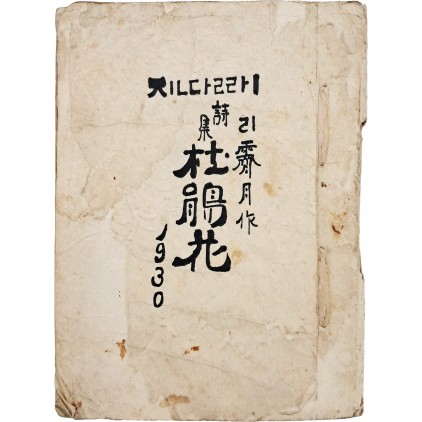 ㅈㅣㄴㄷㅏㄹㄹㅏㅣ
리霽月作
詩集
杜鵑花
1930